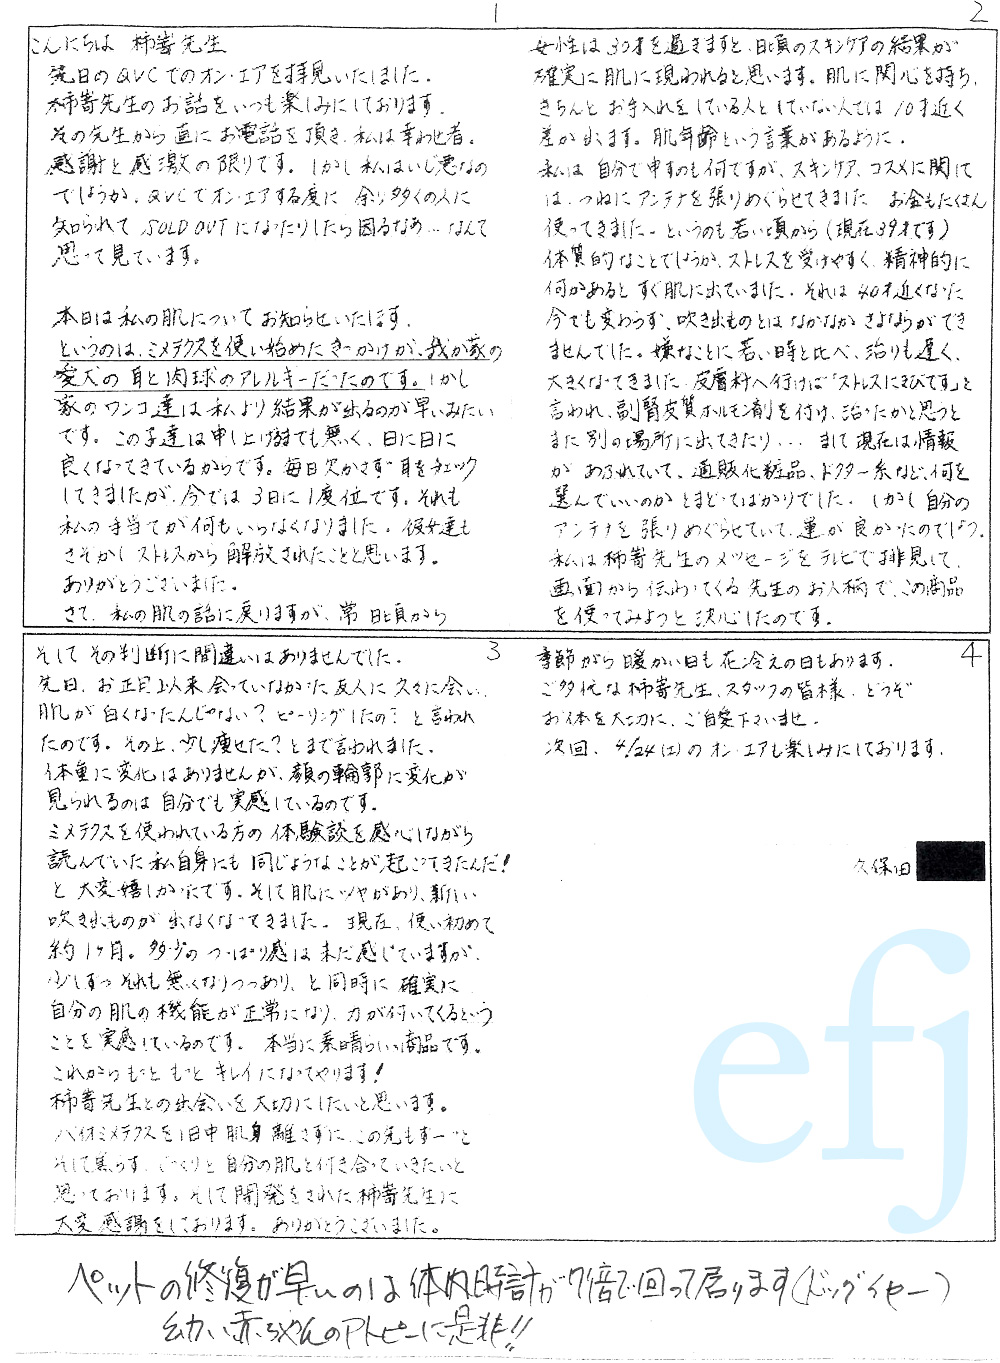 1
こんにちは 柿嵜先生
先日のQVCでのオン・エアを拝見いたしました.
柿嵜先生のお話をいつも楽しみにしております
その先生から直にお電話を頂き、私は幸わせ者.
感謝と感激の限りです。しかし私はいじ悪なの
でしょうか、QVCでオン・エアする度に 余り多くの人に
知られて SOLD OUT になったりしたら困るなあ…なんて
思って見ています。
本日は私の肌について お知らせいたします.
というのは、ミメテクスを使い始めたきっかけが、我が家の
愛犬の耳と肉球のアレルギーだったのです。しかし
家のワンコ達は私より結果が出るのが早いみたい
です。この子達は申し上げるまでも無く、日に日に
良くなってきているからです。毎日欠かさず耳をチェック
してきましたが、今では3日に1度位です。それも
私の手当てが何もいらなくなりました。彼女達も
さぞかしストレスから解放されたことと思います。
ありがとうございました.
さて、私の肌の話に戻りますが、常日頃から
2
女性は30才を過ぎますと、日頃のスキンケアの結果が
確実に肌に現われると思います。肌に関心を持ち、
きちんとお手入れをしている人としていない人では10才近く
差が出ます。肌年齢という言葉があるように.
私は自分で申すのも何ですが、スキンケア、コスメに関して
は、つねにアンテナを張りめぐらせてきました お金もたくさん
使ってきました。というのも若い頃から(現在39才です)
体質的なことでしょうか、ストレスを受けやすく、精神的に
何かあるとすぐ肌に出ていました。それは40才近くなった
今でも変わらず、吹き出ものとはなかなかさよならができ
ませんでした。嫌なことに若い時と比べ、治りも遅く、
大きくなってきました.皮膚科へ行けば「ストレスにきびです」と
言われ、副腎皮質ホルモン剤を付け、治ったかと思うと
また別の場所に出てきたり… まして現在は情報
があふれていて、通販化粧品、ドクター系など、何を
選んでいいのかとまどってばかりでした. しかし自分の
アンテナを張りめぐらせていて、運が良かったのでしょう.
私は柿嵜先生のメッセージをテレビで拝見して、
画面から伝わってくる先生のお人柄で、この商品
を使ってみようと決心したのです.
3
そしてその判断に間違いはありませんでした.
先日、お正月以来会っていなかった友人に久々に会い、
肌が白くなったんじゃない?ピーリングしたの?と言われ
たのです。その上、少し痩せた?とまで言われました.
体重に変化はありませんが、顔の輪郭に変化が
見られるのは自分でも実感しているのです.
ミメテクスを使われている方の体験談を感心しながら
読んでいた私自身にも同じようなことが起こってきたんだ!
と大変嬉しかったです.そして肌にツヤがあり、新しい
吹き出ものが出なくなってきました. 現在、使い初めて
約1ヶ月。多少のつっぱり感は未だ感じていますが、
少しずつそれも無くなりつつあり、と同時に確実に
自分の肌の機能が正常になり、力が付いてくるという
ことを実感しているのです. 本当に素晴らしい商品です.
これからもっともっとキレイになってやります!
柿嵜先生との出会いを大切にしたいと思います。
バイオミメテクスを1日中肌身離さずに、この先もずーっと
そして焦らず、じっくりと自分の肌と付き合っていきたいと
思っております。そして開発をされた柿嵜先生に
大変感謝をしております。ありがとうございました。
4
季節がら暖かい日も花冷えの日もあります.
ご多忙な柿嵜先生、スタッフの皆様、どうぞ
お体を大切に、ご自愛下さいませ.
次回、4/24(土)のオン・エアも楽しみにしております.
久保田
efj
ペットの修復が早いのは体内時計が7倍で回って居ります(ドッグイヤー)
幼い赤ちゃんのアトピーに是非!!